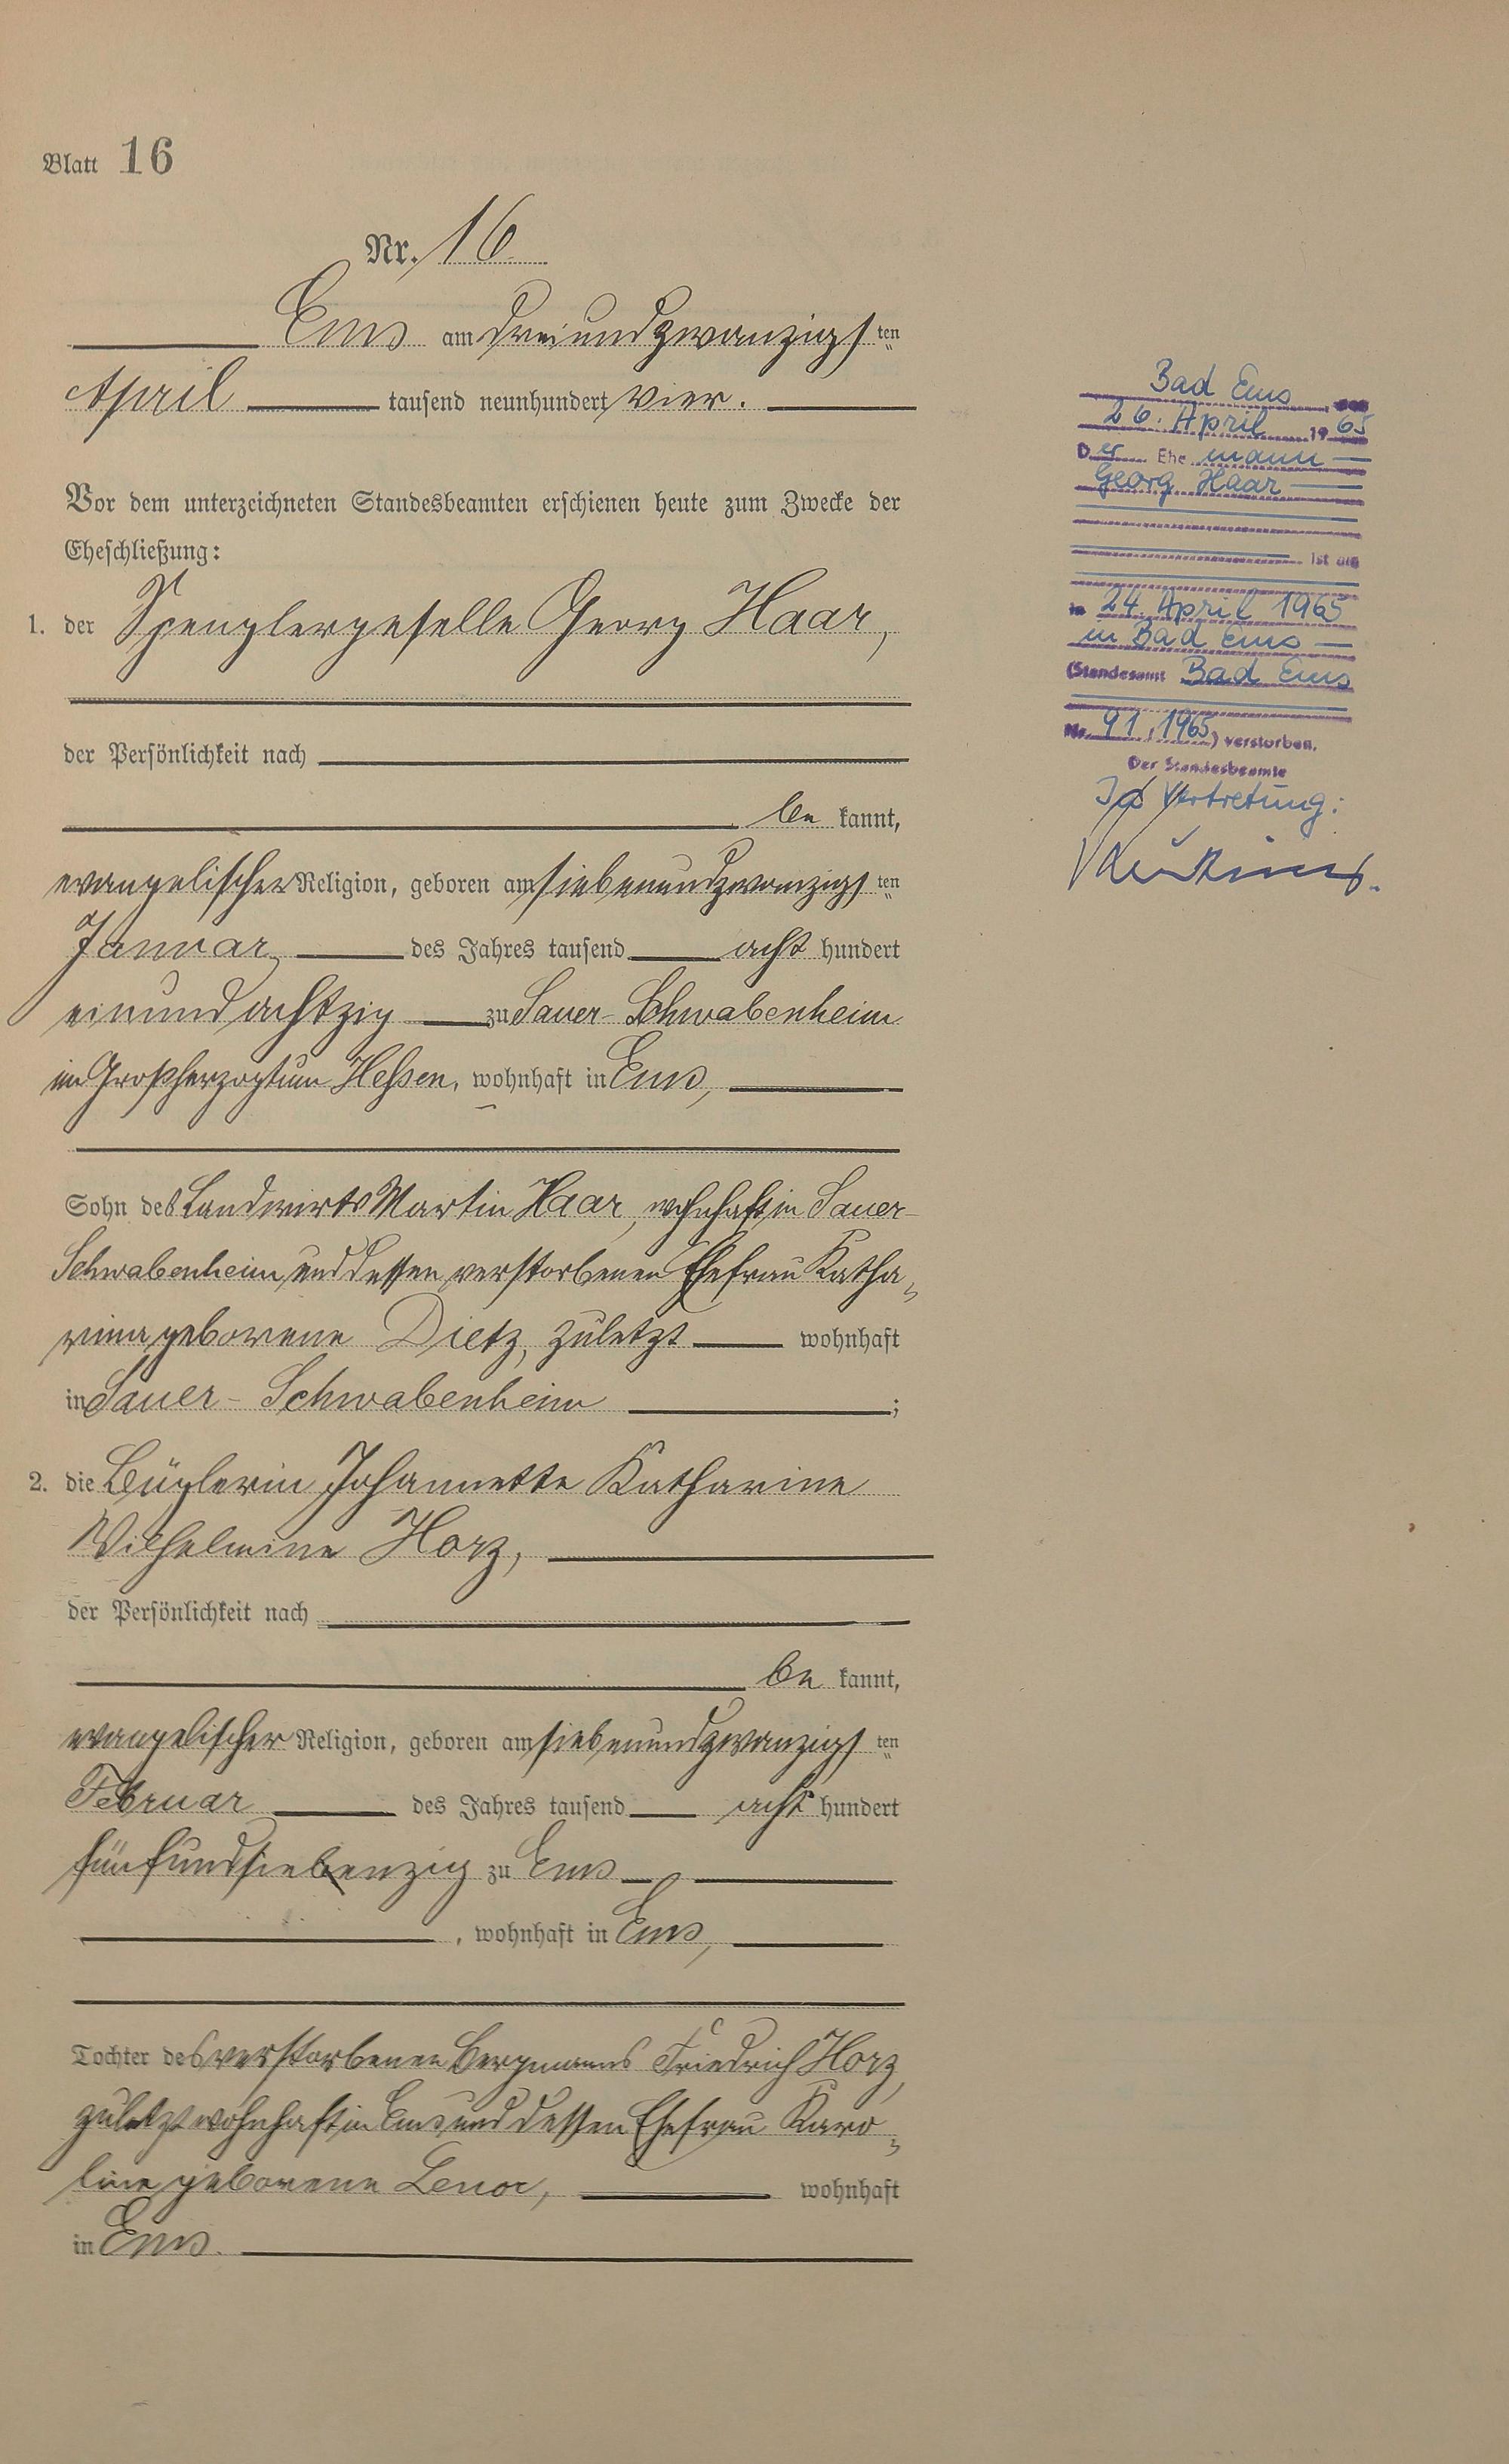 Blatt 16
Nr. 16
Ems am dreiundzwanzigsten
April tausend neunhundert vier.
Vor dem unterzeichneten Standesbeamten erschienen heute zum Zwecke der
Eheschließung:
1. der Spenglergeselle Georg Haar,
der Persönlichkeit nach
be kannt,
evangelischer Religion, geboren am siebenundzwanzigsten
Januar des Jahres tausend acht hundert
einundachtzig zu Sauer-Schwabenheim
im Großherzogtum Hessen, wohnhaft in Ems,
Sohn des Landwirts Martin Haar, wohnhaft in Sauer-
Schwabenheim und dessen verstorbenen Ehefrau Katha-
rina geborene Dietz, zuletzt wohnhaft
in Sauer-Schwabenheim ;
2. die Büglerin Johannette Katharine
Wilhelmine Horz,
der Persönlichkeit nach
be kannt,
evangelischer Religion, geboren am siebenundzwanzigsten
Februar des Jahres tausend acht hundert
fünfundsiebenzig zu Ems
, wohnhaft in Ems,
Tochter des verstorbenen Bergmanns Friedrich Horz,
zuletzt wohnhaft in Ems und dessen Ehefrau Karo-
line geborene Lenor, wohnhaft
in Ems.
Bad Ems
26. April 1965
Der Ehemann
Georg Haar
ist am
24. April 1965
in Bad Ems
(Standesamt Bad Ems
Nr. 91, 1965) verstorben.
Der Standesbeamte
In Vertretung: